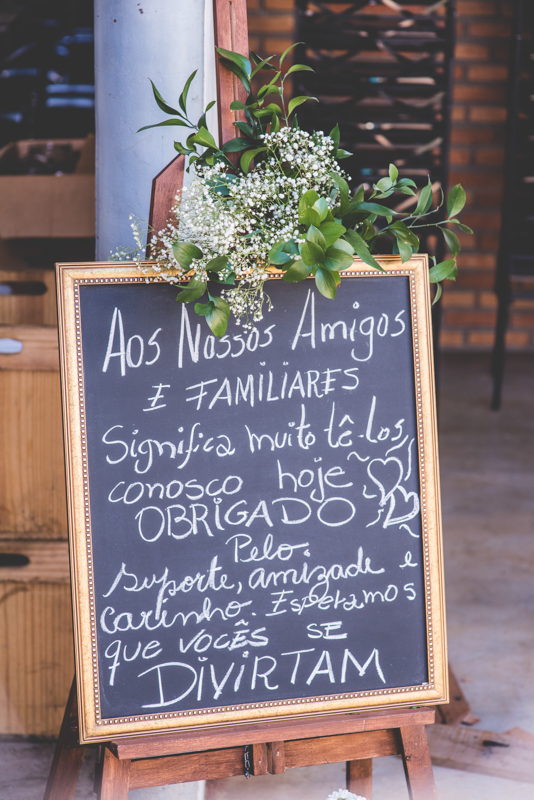 Aos Nossos Amigos
E FAMILIARES
Significa muito tê-los
conosco hoje
OBRIGADO
Pelo
suporte, amizade e
carinho. Esperamos
que vocês se
DIVIRTAM